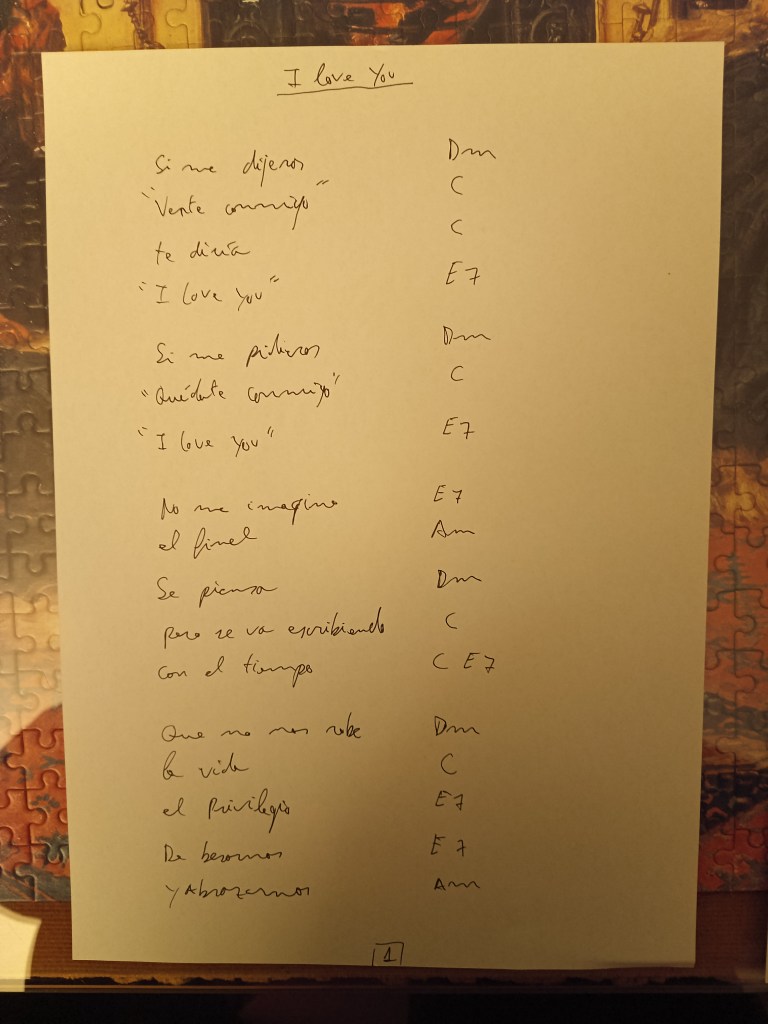 I love You
Si me dijeras Dm
"Vente conmigo" C
te diría C
"I love you" E7
Si me pidieras Dm
"Quédate conmigo" C
"I love you" E7
No me imagino E7
el final Am
Se piensa Dm
pero se va escribiendo C
con el tiempo C E7
Que no nos robe Dm
la vida C
el Privilegio E7
De besarnos E7
y Abrazarnos Am
1